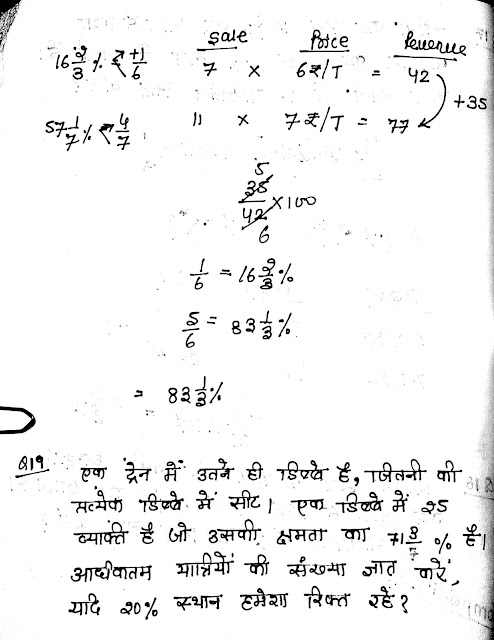 Sale Price Revenue
16 2/3 % ₹ +1/6 7 × 6₹/T = 42
+35
57 1/7 % ₹ 4/7 11 × 7₹/T = 77
5
35/42 × 100
6
1/6 = 16 2/3 %
5/6 = 83 1/3 %
= 83 1/3 %
Q19 एक ट्रेन में उतने ही डिब्बे है, जितनी की
प्रत्येक डिब्बे में सीट। एक डिब्बे में 25
व्यक्ति है जो उसकी क्षमता का 71 3/7 % है।
अधिकतम यात्रियों की संख्या ज्ञात करें,
यदि 20% स्थान हमेशा रिक्त रहे?